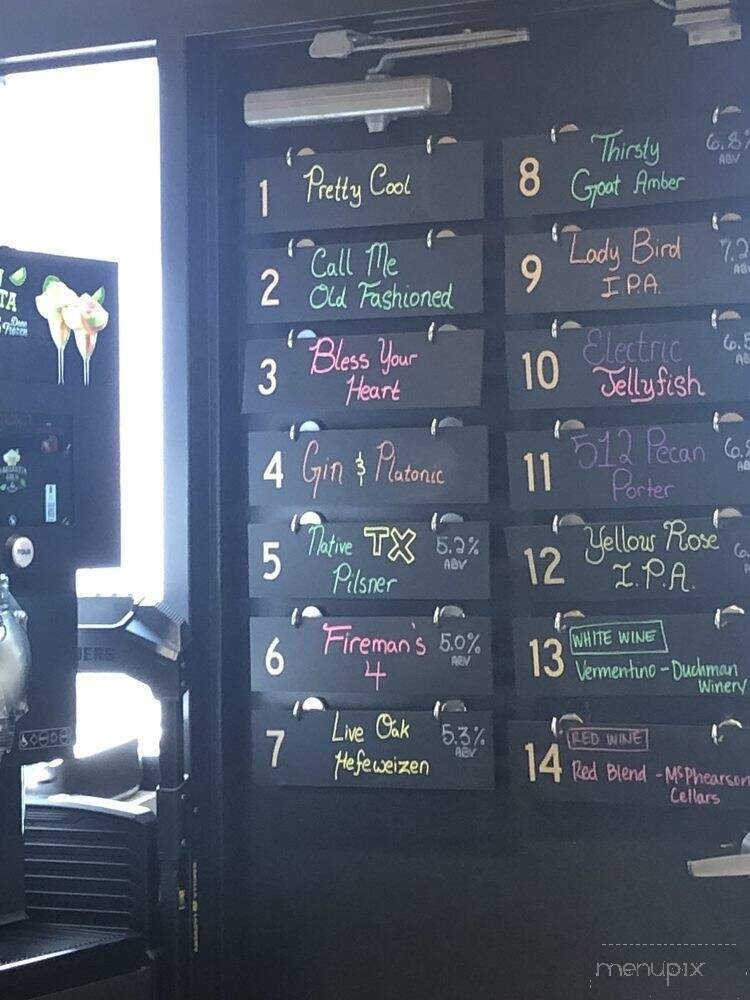 1 Pretty Cool
2 Call Me
Old Fashioned
3 Bless Your
Heart
4 Gin & Platonic
5 Native TX
Pilsner
5.2%
ABV
6 Fireman's
4
5.0%
ABV
7 Live Oak
Hefeweizen
5.3%
ABV
8 Thirsty
Goat Amber
6.8%
ABV
9 Lady Bird
I.P.A.
7.2
AB
10 Electric
Jellyfish
6.5
AB
11 512 Pecan
Porter
6.
12 Yellow Rose
I.P.A.
6.
13 WHITE WINE
Vermentino - Duchman
Winery
14 RED WINE
Red Blend - McPhearson
Cellars
TA
Frozen
menupix